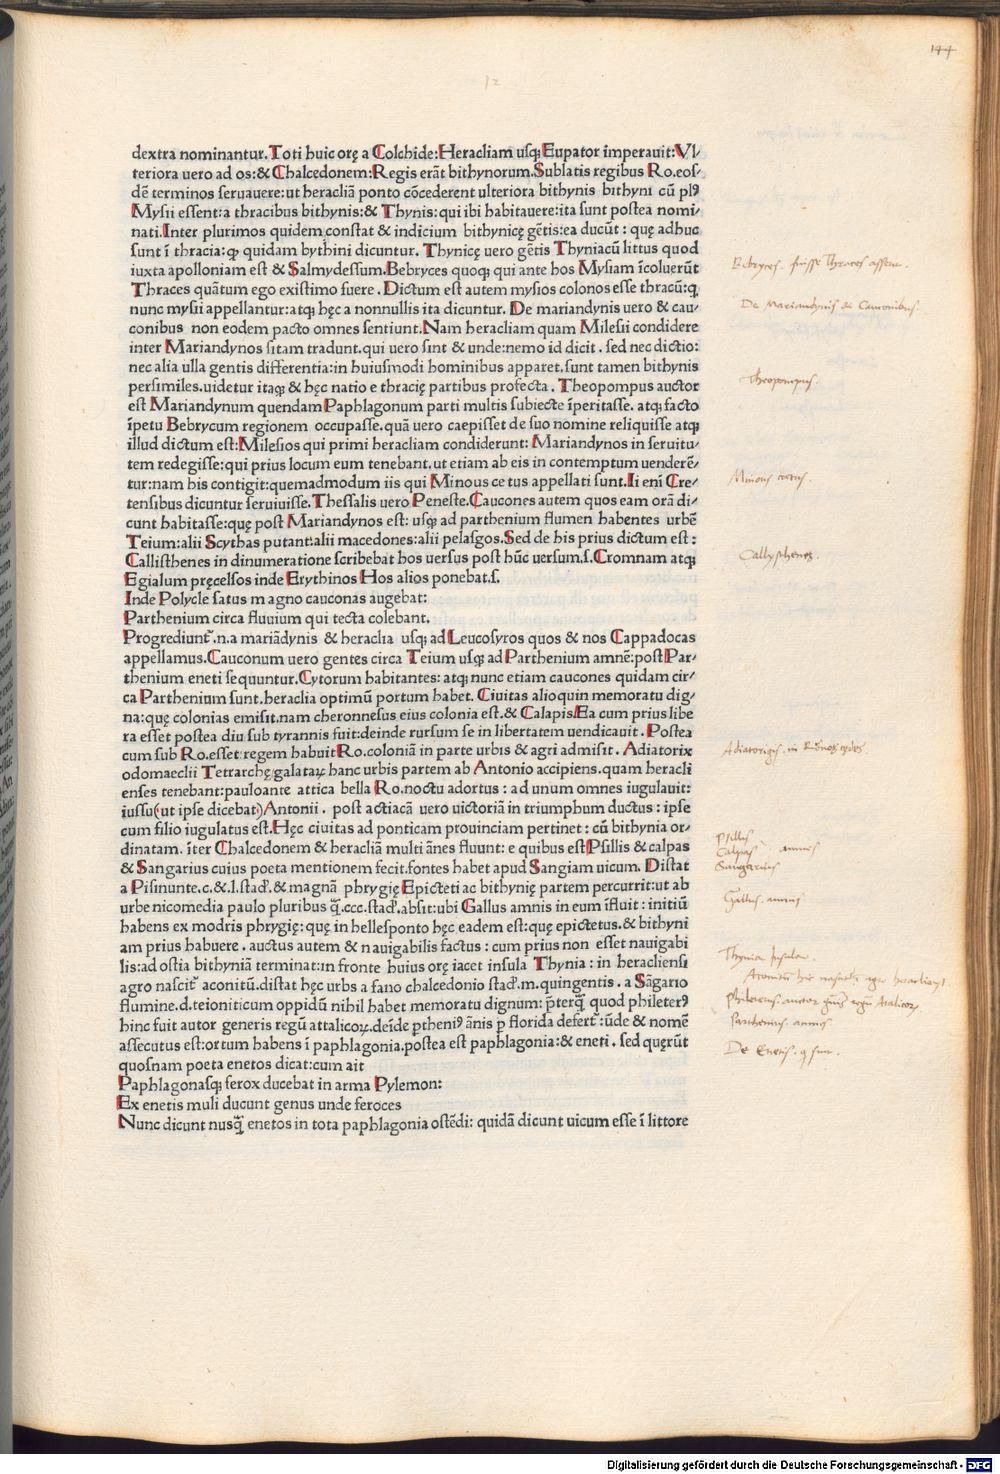 144
12
dextra nominantur. Toti huic orę a Colchide: Heracliam usq; Eupator īmperauit: Vl/
teriora uero ad os: & Chalcedonem: Regis erāt bithynorum. Sublatis regibus Ro. eos/
dē terminos seruauere: ut heracliā ponto cōcederent ulteriora bithynis bithyni cū pl9
Mysii essent: a thracibus bithynis: & Thynis: qui ibi habitauere: ita sunt postea nomi/
nati. Inter plurimos quidem constat & indicium bithynicę gētis: ea ducūt: quę adhuc
sunt ī thracia: qƿ quidam bythini dicuntur. Thynicę uero gētis Thyniacū littus quod
iuxta apolloniam est & Salmydessum. Bebryces quoq; qui ante hos Mysiam īcoluerūt
Thraces quātum ego existimo fuere. Dictum est autem mysios colonos esse thracū: q
nunc mysii appellantur: atq; hęc a nonnullis ita dicuntur. De mariandynis uero & cau/
conibus non eodem pacto omnes sentiunt. Nam heracliam quam Milesii condidere
inter Mariandynos sitam tradunt. qui uero sint & unde: nemo id dicit. sed nec dictio:
nec alia ulla gentis differentia: in huiusmodi hominibus apparet. sunt tamen bithynis
persimiles. uidetur itaq; & hęc natio e thracię partibus profecta. Theopompus auctor
est Mariandynum quendam Paphlagonum parti multis subiecte īperitasse. atq; facto
īpetu Bebrycum regionem occupasse. quā uero caepisset de suo nomine reliquisse atq;
illud dictum est: Milesios qui primi heracliam condiderunt: Mariandynos in seruitu/
tem redegisse: qui prius locum eum tenebant. ut etiam ab eis in contemptum uenderē/
tur: nam his contigit: quemadmodum iis qui Minous cętus appellati sunt. Ii eni Cre/
tensibus dicuntur seruiuisse. Thessalis uero Peneste. Caucones autem quos eam orā di/
cunt habitasse: quę post Mariandynos est: usq; ad parthenium flumen habentes urbē
Teium: alii Scythas putant: alii macedones: alii pelasgos. Sed de his prius dictum est:
Callisthenes in dinumeratione scribebat hos uersus post hūc uersum. s. Cromnam atq;
Egialum pręcelsos inde Erythinos Hos alios ponebat. s.
Inde Polycle satus magno cauconas augebat:
Parthenium circa fluuium qui tecta colebant.
Progrediunt͂. n. a mariādynis & heraclia usq; ad Leucosyros quos & nos Cappadocas
appellamus. Cauconum uero gentes circa Teium usq; ad Parthenium amnē: post Par/
thenium eneti sequuntur. Cytorum habitantes: atq; nunc etiam caucones quidam cir/
ca Parthenium sunt. heraclia optimū portum habet. Ciuitas alioquin memoratu dig/
na: quę colonias emisit. nam cheronnesus eius colonia est. & Calapis Ea cum prius libe
ra esset postea diu sub tyrannis fuit: deinde rursum se in libertatem uendicauit. Postea
cum sub Ro. esset: regem habuit Ro. coloniā in parte urbis & agri admisit. Adiatorix
odomaeclii Tetrarchę galataꝝ hanc urbis partem ab Antonio accipiens. quam heracli
enses tenebant: pauloante attica bella Ro. noctu adortus: ad unum omnes iugulauit:
iussu (ut ipse dicebat) Antonii. post actiacā uero uictoriā in triumphum ductus: ipse
cum filio iugulatus est. Hęc ciuitas ad ponticam prouinciam pertinet: cū bithynia or/
dinatam. īter Chalcedonem & heracliā multi ānes fluunt: e quibus est Psillis & calpas
& Sangarius cuius poeta mentionem fecit. fontes habet apud Sangiam uicum. Distat
a Pisinunte. c. & l. stad͂. & magnā phrygię Epicteti ac bithynię partem percurrit: ut ab
urbe nicomedia paulo pluribus q̄. ccc. stad͂. absit: ubi Gallus amnis in eum īfluit: initiū
habens ex modris phrygię: quę in hellesponto hęc eadem est: quę epictetus. & bithyni
am prius habuere. auctus autem & nauigabilis factus: cum prius non esset nauigabi
lis: ad ostia bithyniā terminat: in fronte huius orę iacet insula Thynia: in heracliensi
agro nascit͂ aconitū. distat hęc urbs a fano chalcedonio stad͂. m. quingentis. a Sāgario
flumine. d. teioniticum oppidū nihil habet memoratu dignum: p̄terq̄ quod phileter9
hinc fuit autor generis regū attalicoꝝ. deīde ptheni9 ānis p florida defert͂: ūde & nomē
assecutus est: ortum habens ī paphlagonia. postea est paphlagonia: & eneti. sed quęrūt
quosnam poeta enetos dicat: cum ait
Paphlagonasq; ferox ducebat in arma Pylemon:
Ex enetis muli ducunt genus unde feroces
Nunc dicunt nusq̄ enetos in tota paphlagonia ostēdi: quidā dicunt uicum esse ī littore
Bebryces. fuisse Thraces
De Mariandynis & Cauconibus.
Theopompus.
Minous cetus.
Callysthenes.
Adiatorigis. in
Psillis
Calpas amnes
Sangarius
Gallus. amnis
Thynia Insula.
Aconitū hic agro
Phileterus. auctor
Parthenius. amnis
De Enetis.
Digitalisierung gefördert durch die Deutsche Forschungsgemeinschaft - DFG